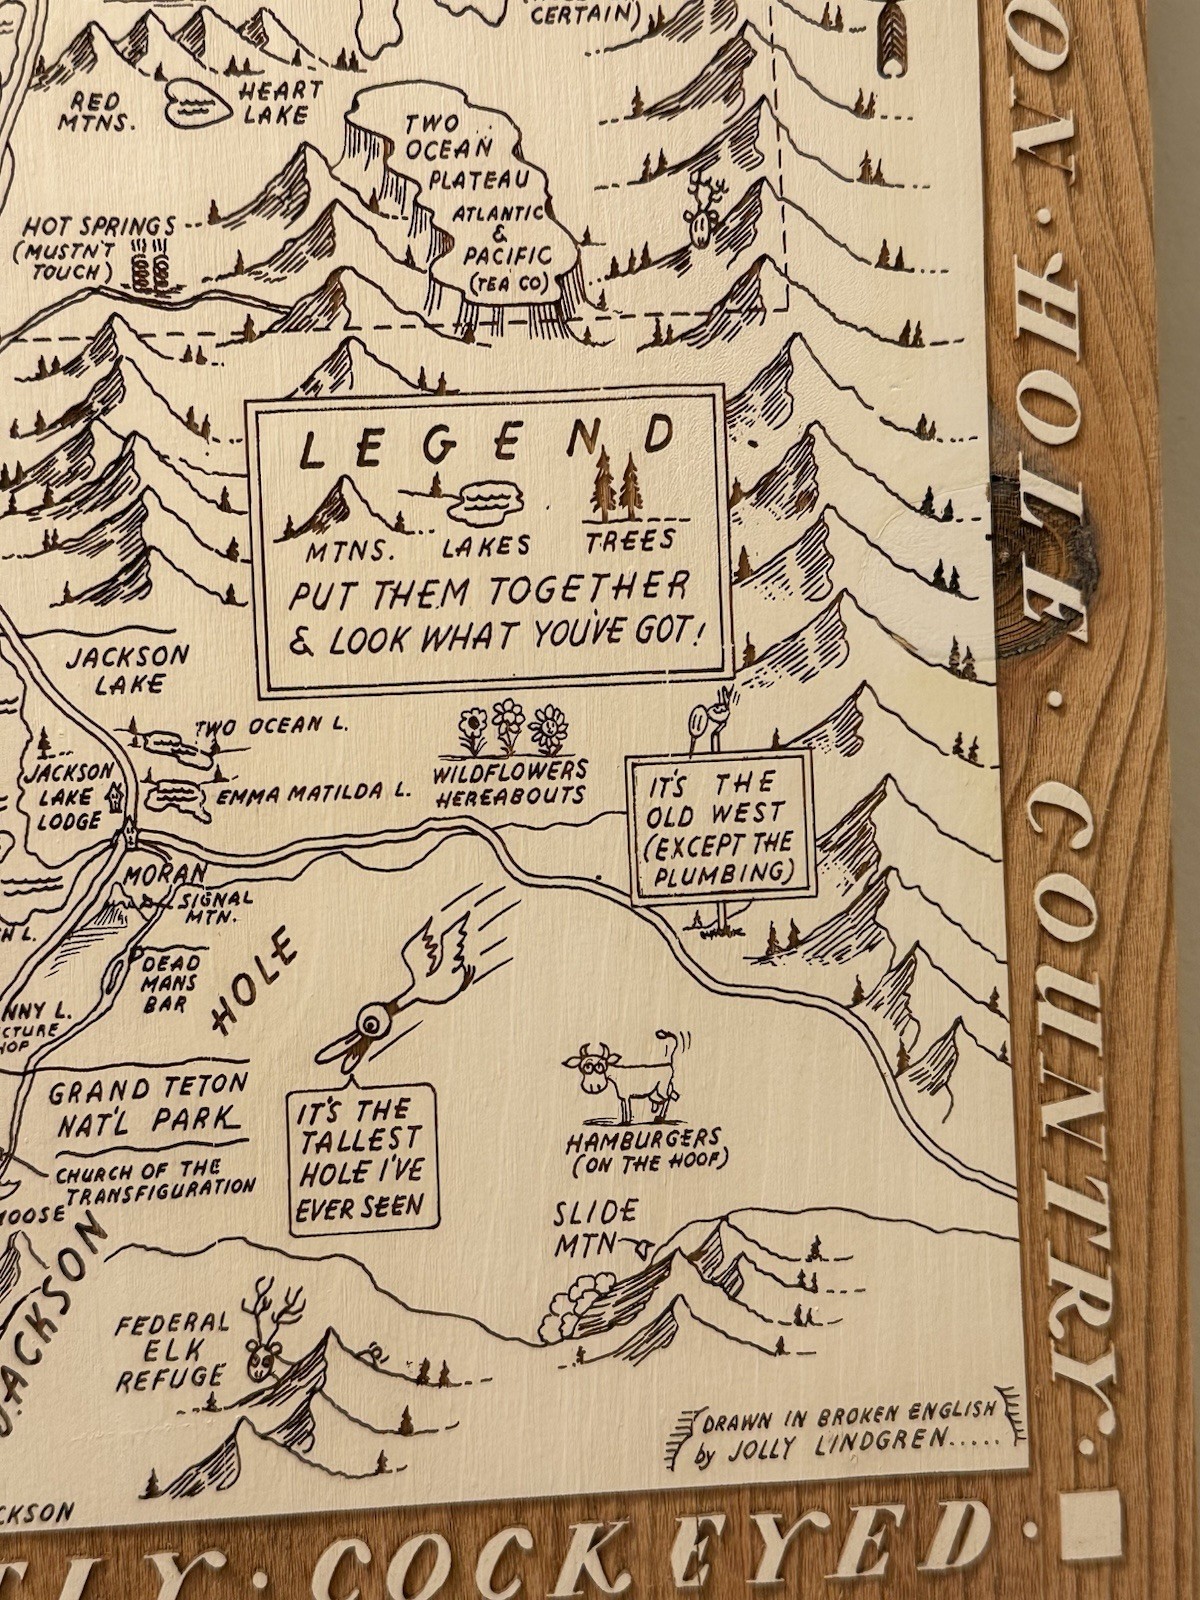 CERTAIN)
RED
MTNS.
HEART
LAKE
TWO
OCEAN
PLATEAU
ATLANTIC
&
PACIFIC
(TEA CO)
HOT SPRINGS
(MUSTN'T
TOUCH)
LEGEND
MTNS. LAKES TREES
PUT THEM TOGETHER
& LOOK WHAT YOU'VE GOT!
JACKSON
LAKE
TWO OCEAN L.
JACKSON
LAKE
LODGE
EMMA MATILDA L.
WILDFLOWERS
HEREABOUTS
IT'S THE
OLD WEST
(EXCEPT THE
PLUMBING)
MORAN
SIGNAL
MTN.
DEAD
MANS
BAR
NNY L.
CTURE
HOP
JACKSON HOLE
GRAND TETON
NAT'L PARK
CHURCH OF THE
TRANSFIGURATION
MOOSE
IT'S THE
TALLEST
HOLE I'VE
EVER SEEN
HAMBURGERS
(ON THE HOOF)
SLIDE
MTN
FEDERAL
ELK
REFUGE
DRAWN IN BROKEN ENGLISH
by JOLLY LINDGREN.....
CKSON
ON · HOLE · COUNTRY ·
TLY · COCKEYED ·